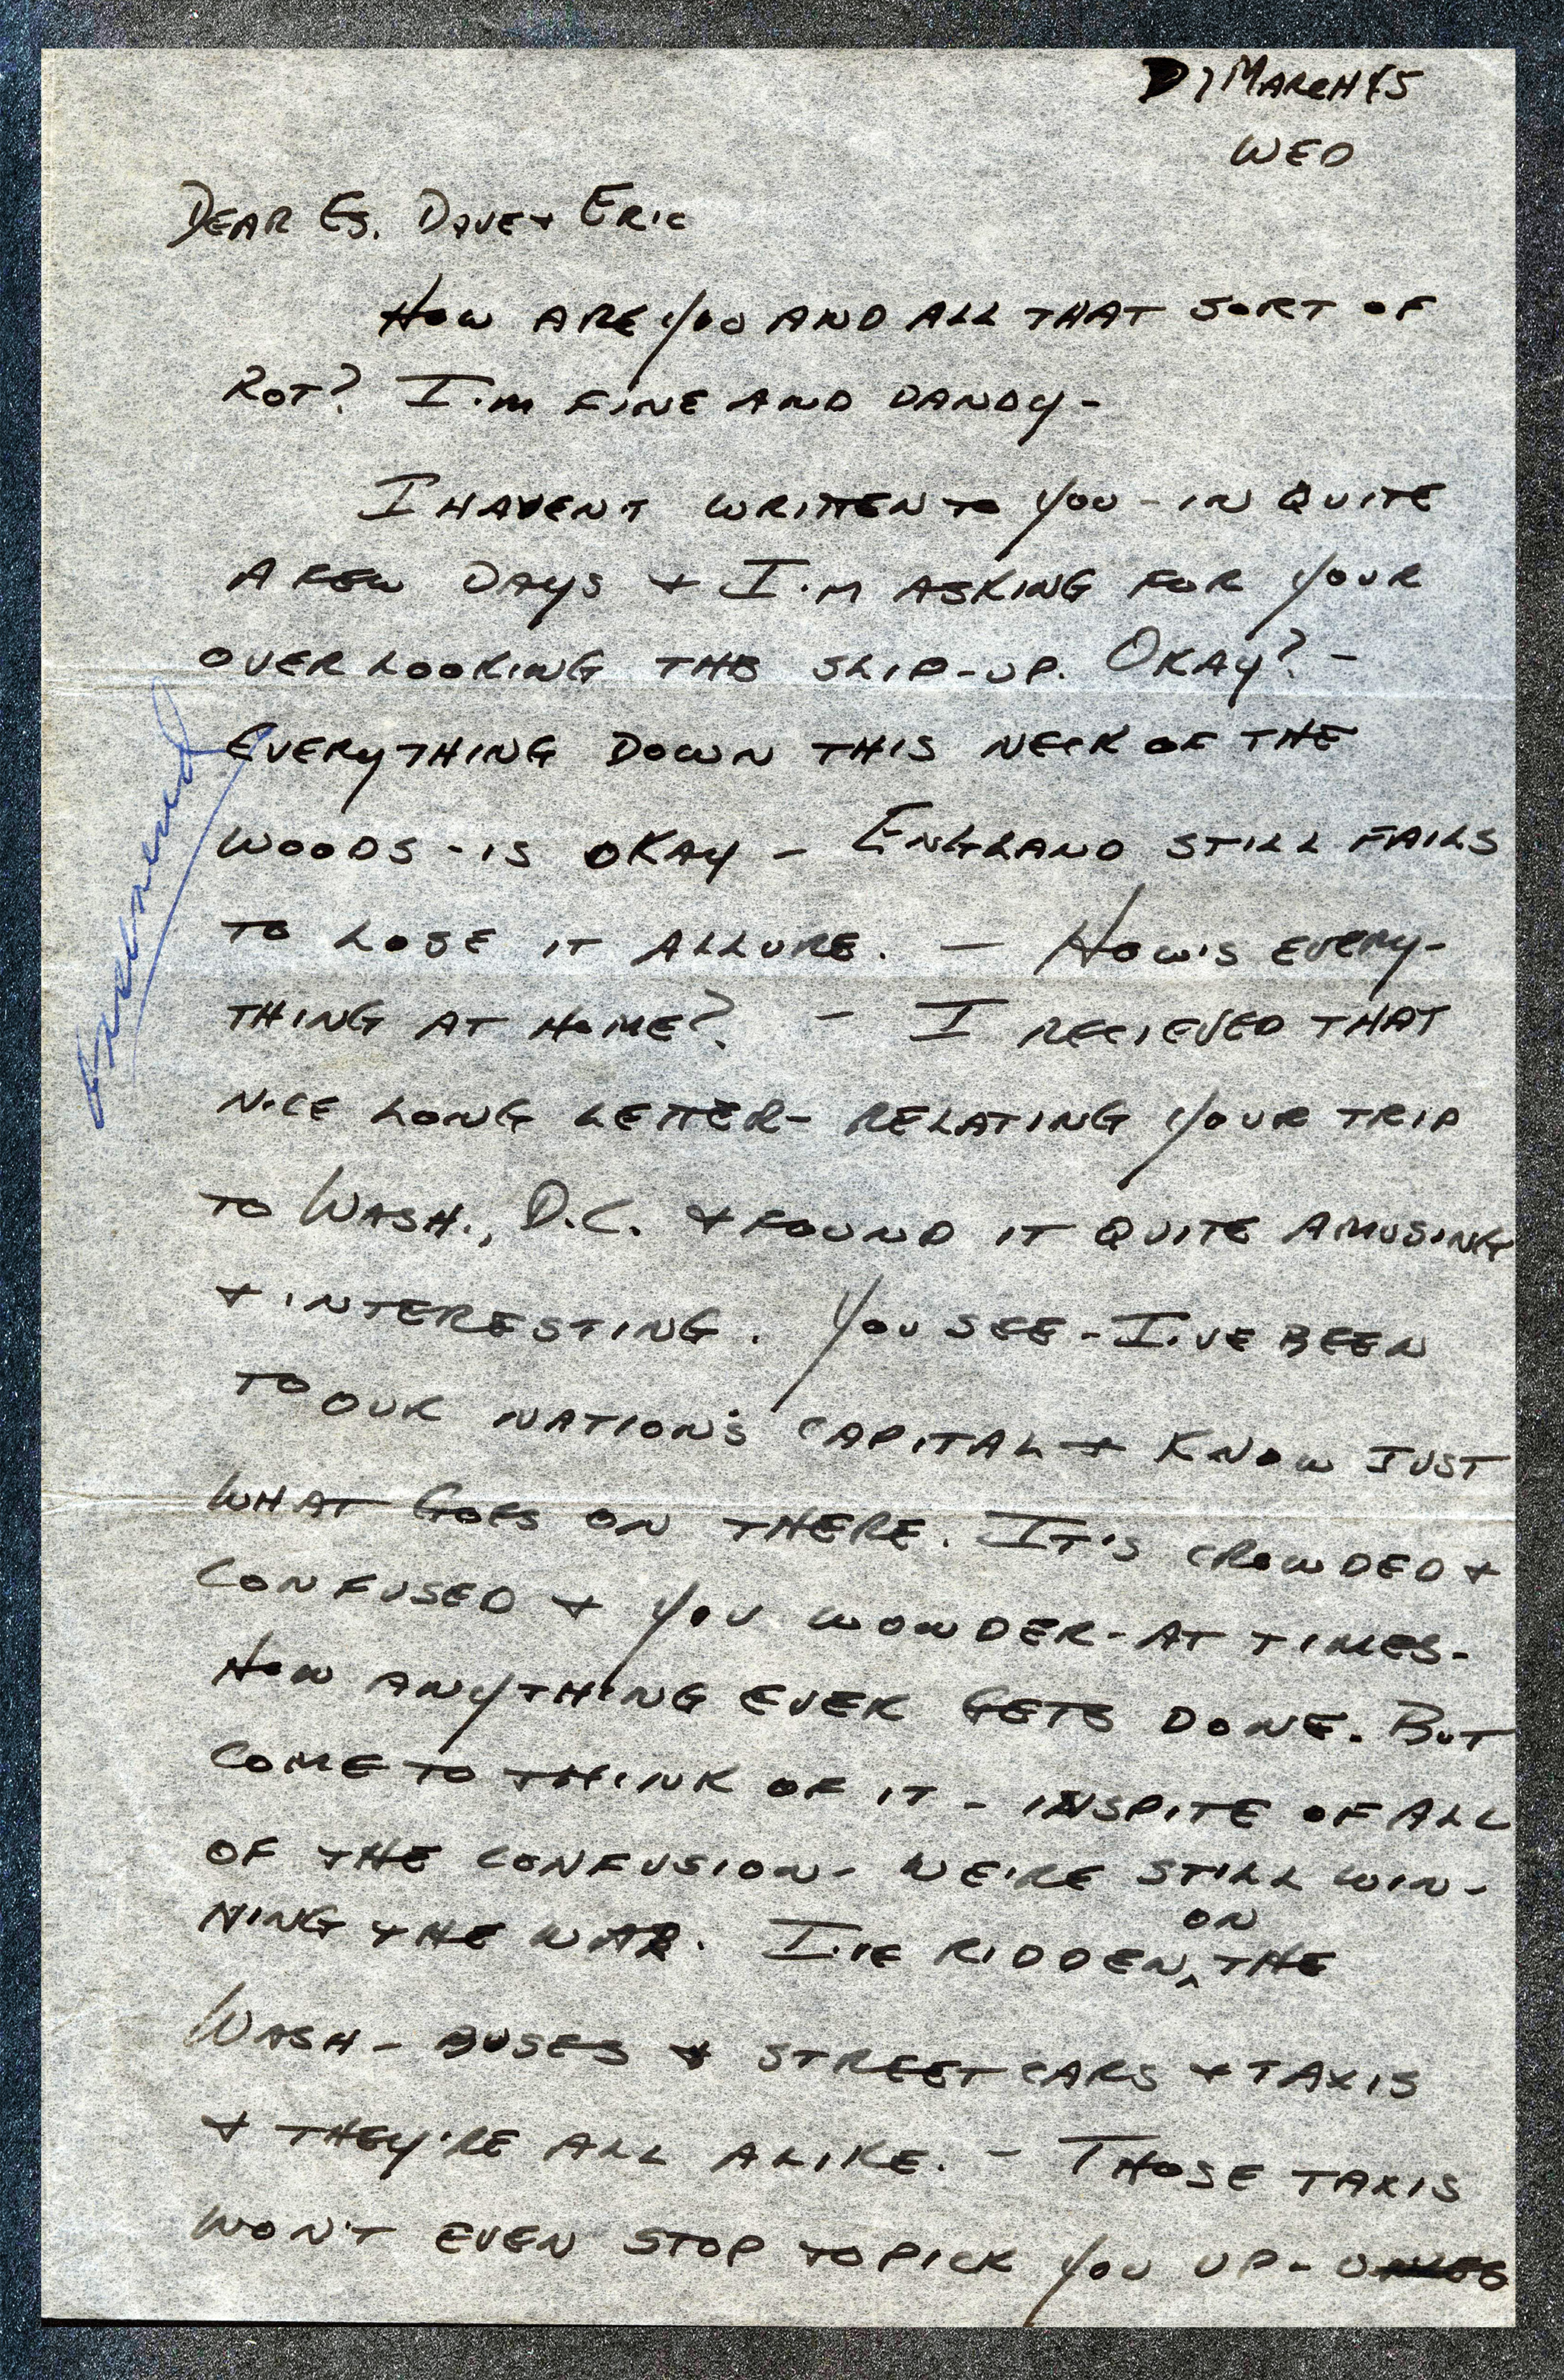 7 MARCH 45
WED
DEAR ES, DAVE & ERIC
HOW ARE YOU AND ALL THAT SORT OF
ROT? I'M FINE AND DANDY-
I HAVEN'T WRITTEN TO YOU - IN QUITE
A FEW DAYS & I'M ASKING FOR YOUR
OVER LOOKING THE SLIP-UP. OKAY? -
EVERYTHING DOWN THIS NECK OF THE
WOODS - IS OKAY - ENGLAND STILL FAILS
TO LOSE IT ALLURE. - HOW'S EVERY-
THING AT HOME? - I RECIEVED THAT
NICE LONG LETTER - RELATING YOUR TRIP
TO WASH., D.C. & FOUND IT QUITE AMUSING
& INTERESTING. YOU SEE - I'VE BEEN
TO OUR NATION'S CAPITAL & KNOW JUST
WHAT GOES ON THERE. IT'S CROWDED &
CONFUSED & YOU WONDER - AT TIMES -
HOW ANYTHING EVER GETS DONE. BUT
COME TO THINK OF IT - INSPITE OF ALL
OF THE CONFUSION - WE'RE STILL WIN-
NING THE WAR. I'VE RIDDEN ON THE
WASH - BUSES & STREET CARS & TAXIS
& THEY'RE ALL ALIKE. - THOSE TAXIS
WON'T EVEN STOP TO PICK YOU UP -
Answered